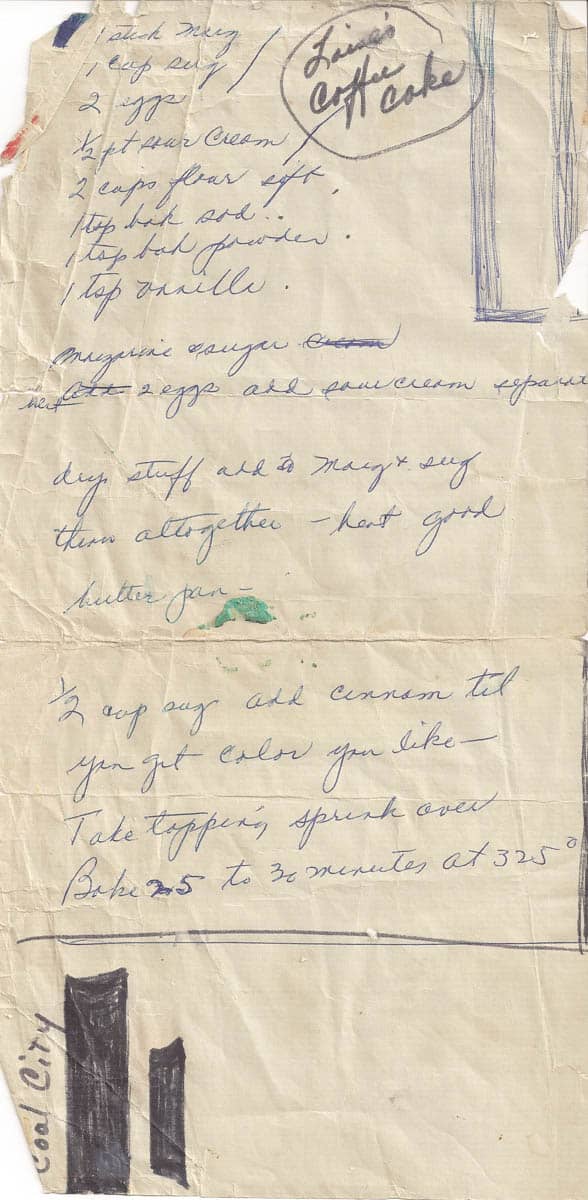 1 stick Marg
1 cup sug
2 eggs
½ pt sour Cream
2 cups flour sift
1 tsp bak sod..
1 tsp bak powder.
1 tsp vanilla.
coffee
cake
Margarine & sugar cream
beat add 2 eggs add sour cream separate
dry stuff add to Marg & sug
then altogether – beat good
butter pan –
½ cup sug add cinnam til
you get color you like –
Take topping sprink over
Bake 25 to 30 minutes at 325°
Coal City